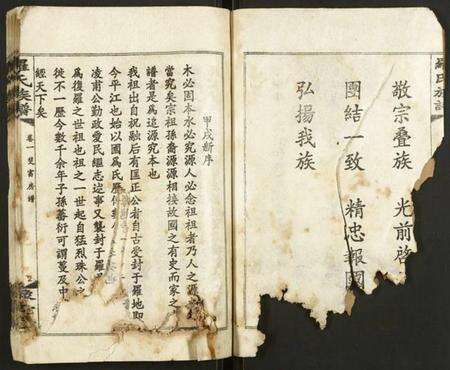 羅氏族譜
敬宗叠族 光前啓
團結一致 精忠報國
弘揚我族
甲戌新序
木必固本水必究源人必念祖祖者乃人之源
當究矣宗祖孫裔源源相接故國之有史而家之
譜者是爲追源究本也
我祖出自祝融后有匡正公者自古受封于羅地即
今平江也始以國爲氏歷
凌甫公勤政愛民繼志述事又襲封于羅
爲復羅之世祖也祖之一世起自猛烈珠公之
從不一歷今數千余年子孫蕃衍可謂蔓及中
經天下矣
羅氏族譜 卷一